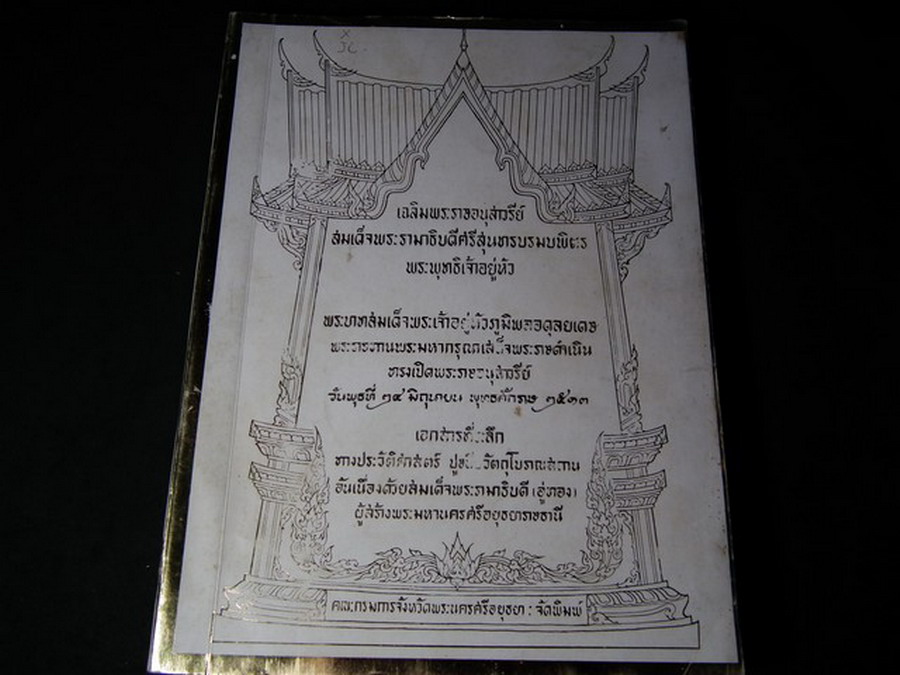 X
JC.
เฉลิมพระราชอนุสาวรีย์
สมเด็จพระรามาธิบดีศรีสุนทรบรมบพิตร
พระพุทธิเจ้าอยู่หัว
พระบาทสมเด็จพระเจ้าอยู่หัวภูมิพลอดุลยเดช
พระราชทานพระมหากรุณาเสด็จพระราชดำเนิน
ทรงเปิดพระราชอนุสาวรีย์
วันพุธที่ ๒๔ มิถุนายน พุทธศักราช ๒๕๑๓
เอกสารที่ระลึก
ทางประวัติศาสตร์ วัตถุโบราณสถาน
อันเนื่องด้วยสมเด็จพระรามาธิบดี (อู่ทอง)
ผู้สร้างพระมหานครศรีอยุธยาราชธานี
คณะกรมการจังหวัดพระนครศรีอยุธยา : จัดพิมพ์